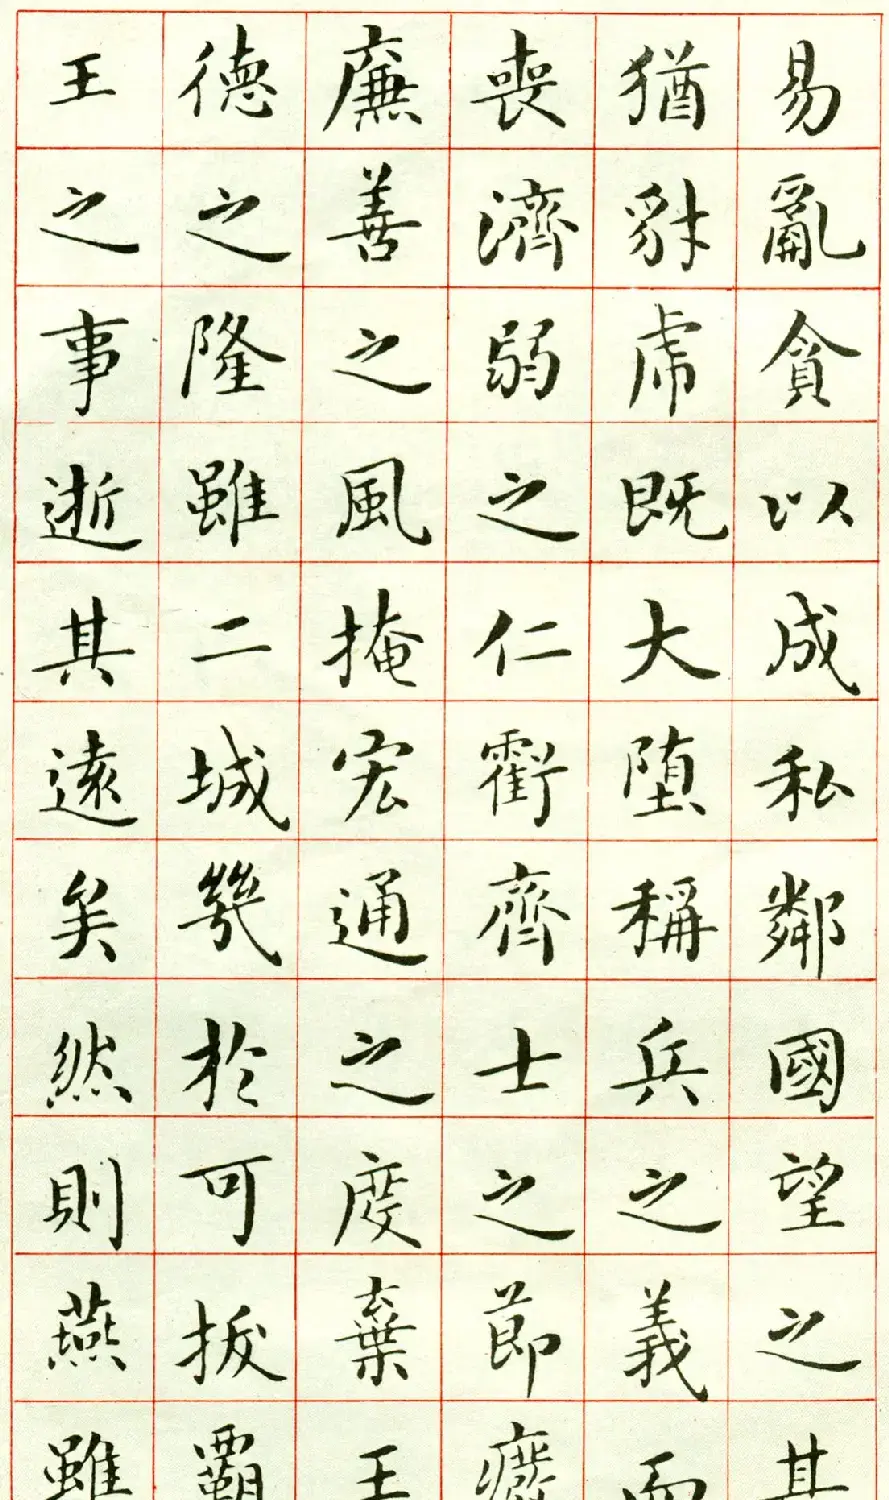 易亂貪以成私鄰國望之其
猶豺虎既大墮稱兵之義而
喪濟弱之仁虧齊士之節癈
廉善之風掩宏通之度棄王
德之隆雖二城幾於可拔霸
王之事逝其遠矣然則燕雖